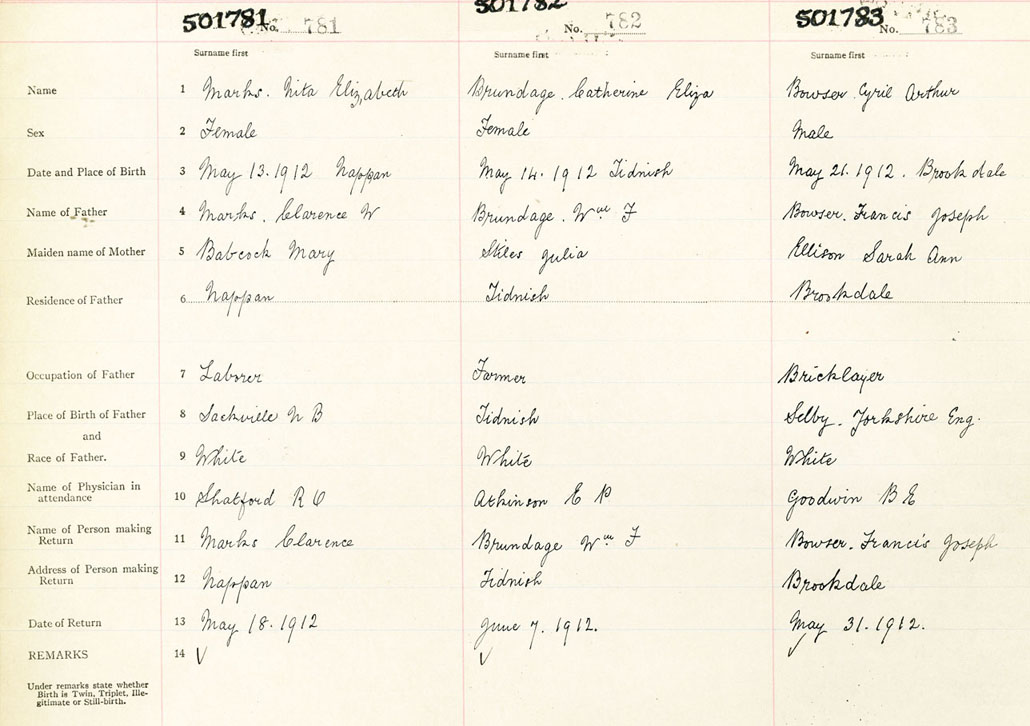 501781 501782 501783
No. 781 No. 782 No. 783
Surname first Surname first Surname first
Name 1 Marks. Nita Elizabeth Brundage. Catherine Eliza Bowser. Cyril Arthur
Sex 2 Female Female Male
Date and Place of Birth 3 May 13. 1912 Nappan May 14. 1912 Tidnish May 21. 1912. Brookdale
Name of Father 4 Marks. Clarence W Brundage. Wm F Bowser. Francis Joseph
Maiden name of Mother 5 Babcock Mary Stiles Julia Ellison Sarah Ann
Residence of Father 6 Nappan Tidnish Brookdale
Occupation of Father 7 Laborer Farmer Bricklayer
Place of Birth of Father 8 Sackville N B Tidnish Selby. Yorkshire Eng.
and
Race of Father. 9 White White White
Name of Physician in
attendance 10 Shatford R O Atkinson E P Goodwin B E
Name of Person making
Return 11 Marks Clarence Brundage Wm F Bowser. Francis Joseph
Address of Person making
Return 12 Nappan Tidnish Brookdale
Date of Return 13 May 18. 1912 June 7. 1912. May 31. 1912.
REMARKS 14 √ √ √
Under remarks state whether
Birth is Twin, Triplet, Ille-
gitimate or Still-birth.